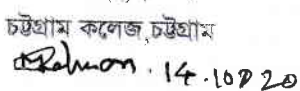 চট্টগ্রাম কলেজ, চট্টগ্রাম
Rahman. 14.10